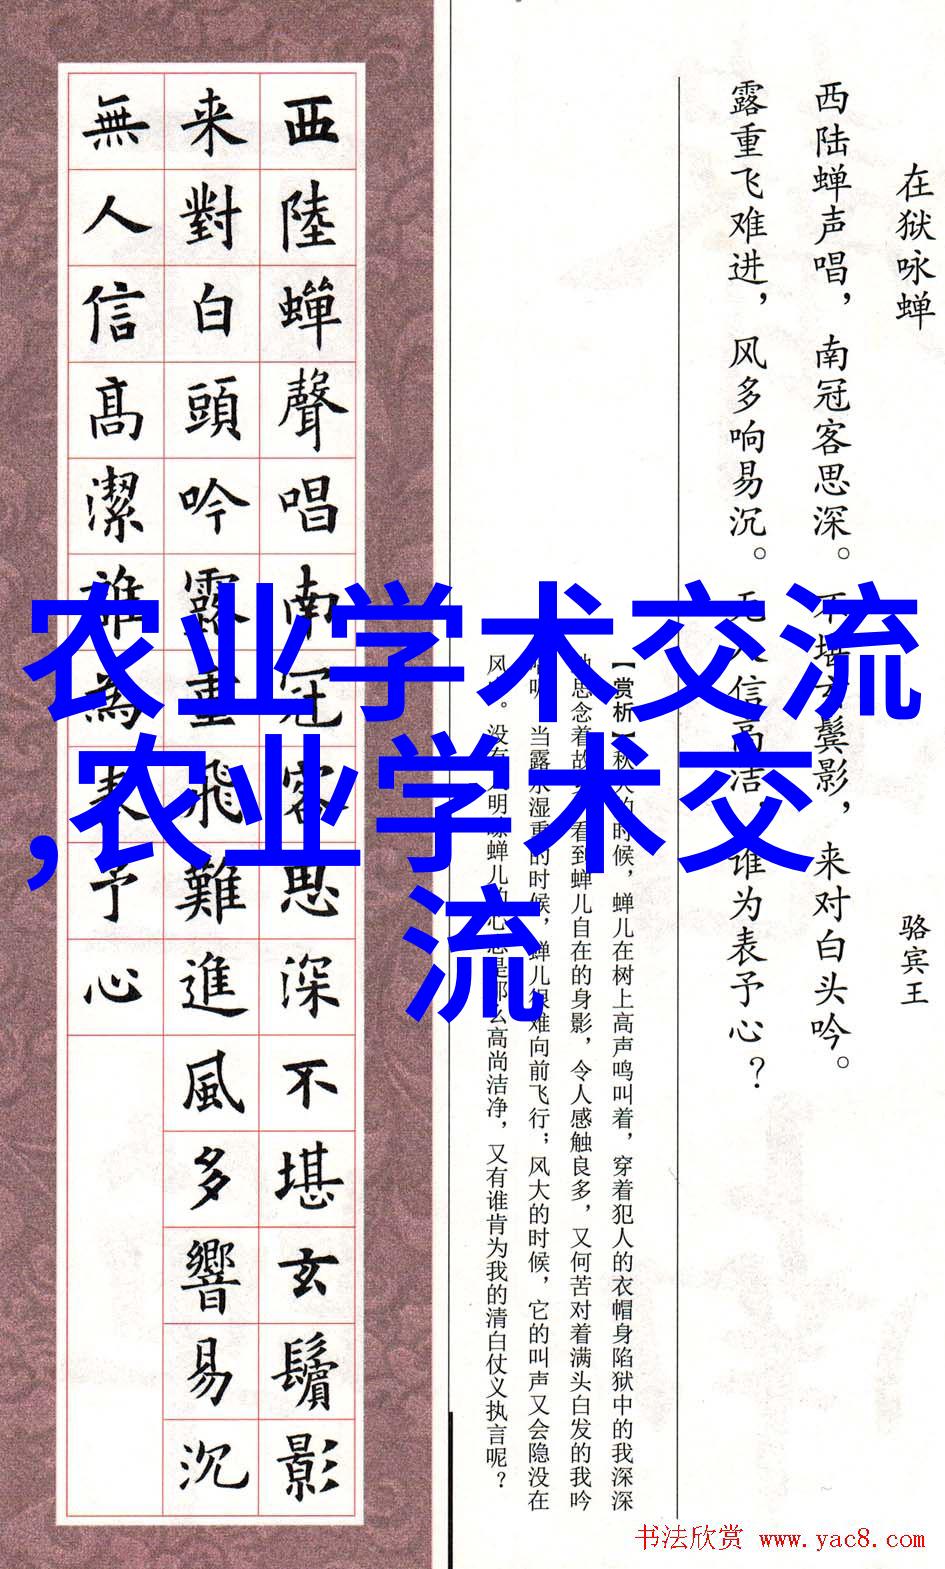 在狱咏蝉
骆宾王
西陆蝉声唱，南冠客思深。不堪玄鬓影，来对白头吟。
露重飞难进，风多响易沉。无人信高洁，谁为表予心？
【赏析】秋天的时候，蝉儿在树上高声鸣叫着，穿着犯人的衣帽身陷狱中的我深深
地思念着故 看到蝉儿自在的身影，令人感触良多，又何苦对着满头白发的我吟
呢 当露水湿重的时候，蝉儿很难向前飞行；风大的时候，它的叫声又会隐没在
风 。没有 明 蝉儿的心 是那么高尚洁净，又有谁肯为我的清白仗义执言呢？
西陸蟬聲唱南冠客思深不堪玄鬢影
来對白頭吟露重飛難進風多響易沉
無人信高潔誰為表予心
农业学术交流
,农业学术交
流
书法欣赏 www.yac8.com